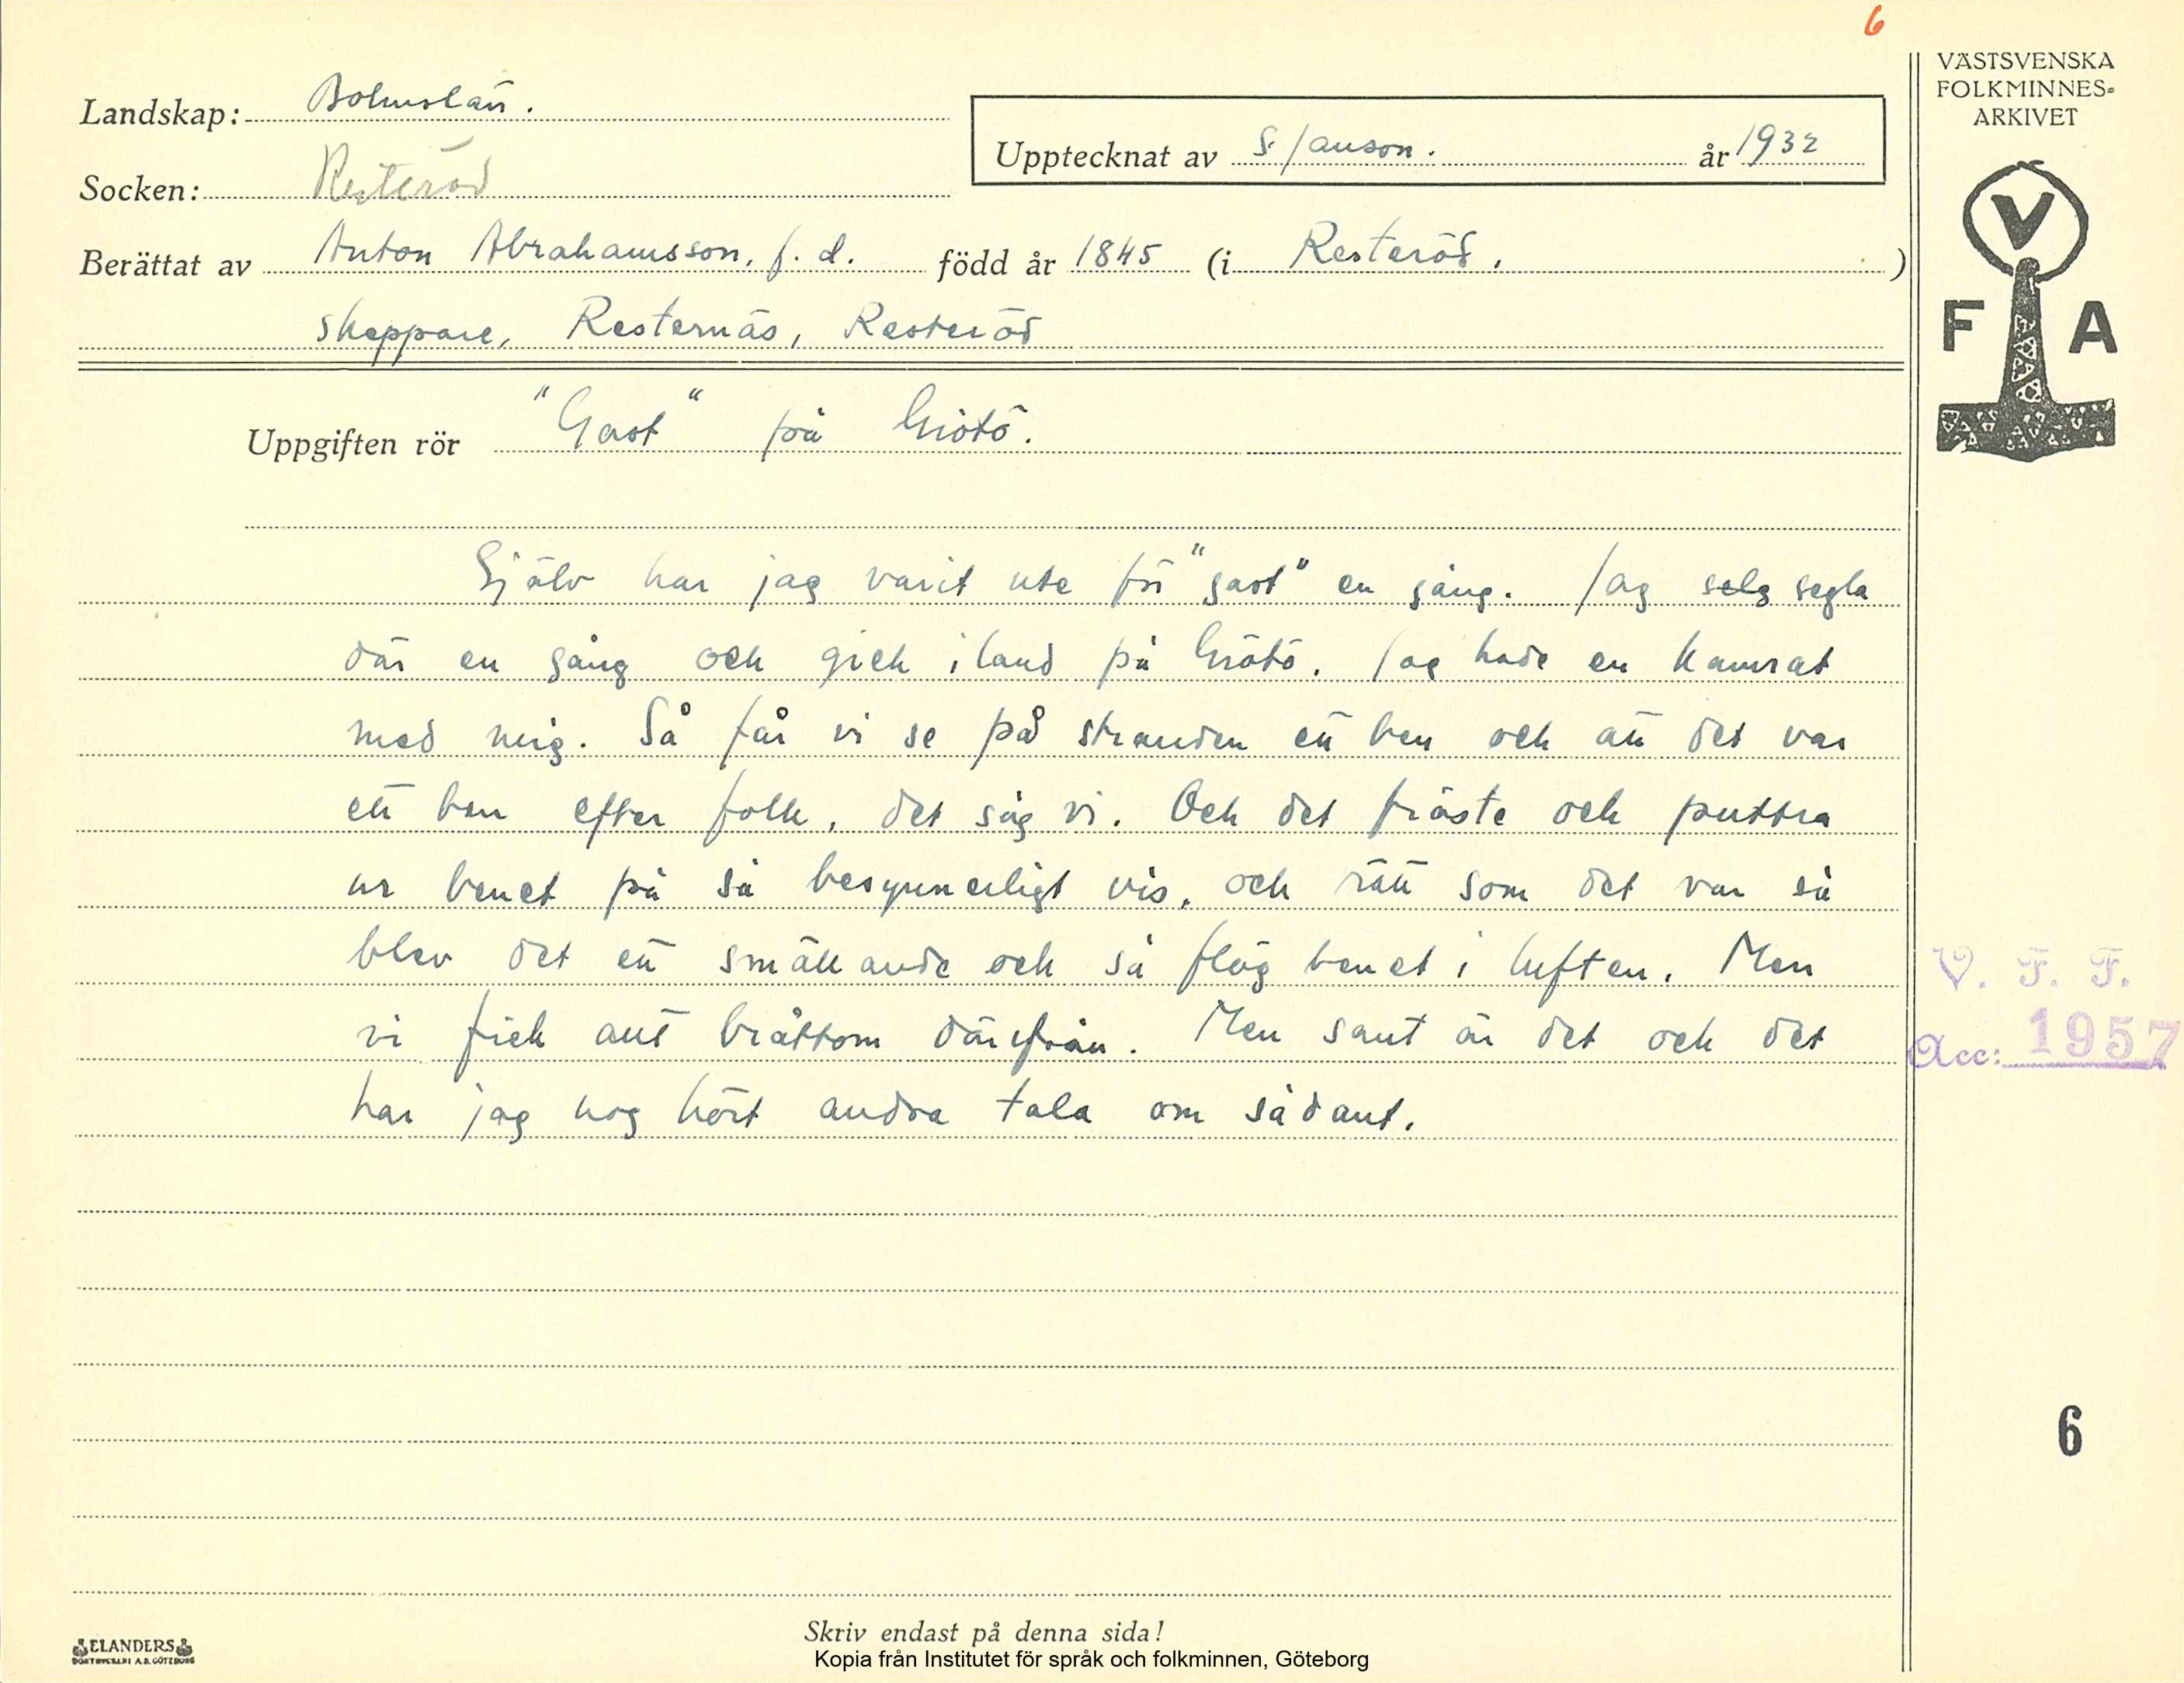 6
VÄSTSVENSKA
FOLKMINNES-
ARKIVET
Landskap: Bohuslän.
Upptecknat av S. Janson. år 1932
Socken: Resteröd
Berättat av Anton Abrahamsson, f. d. född år 1845 (i Resteröd, )
skeppare, Resternäs, Resteröd
V
F A
Uppgiften rör "Gast" på Grötö.
Själv har jag varit ute för "gast" en gång. Jag selg segla
där en gång och gick iland på Grötö. Jag hade en kamrat
med mig. Så får vi se på stranden ett ben och att det var
ett ben efter folk, det såg vi. Och det fräste och puttra
ur benet på så besynnerligt vis, och rätt som det var så
blev det ett smällande och så flög benet i luften. Men
vi fick allt bråttom därifrån. Men sant är det och det
har jag nog hört andra tala om sådant.
V. F. F.
Acc: 1957
6
Skriv endast på denna sida!
ELANDERS
BOKTRYCKERI A.B. GÖTEBORG
Kopia från Institutet för språk och folkminnen, Göteborg